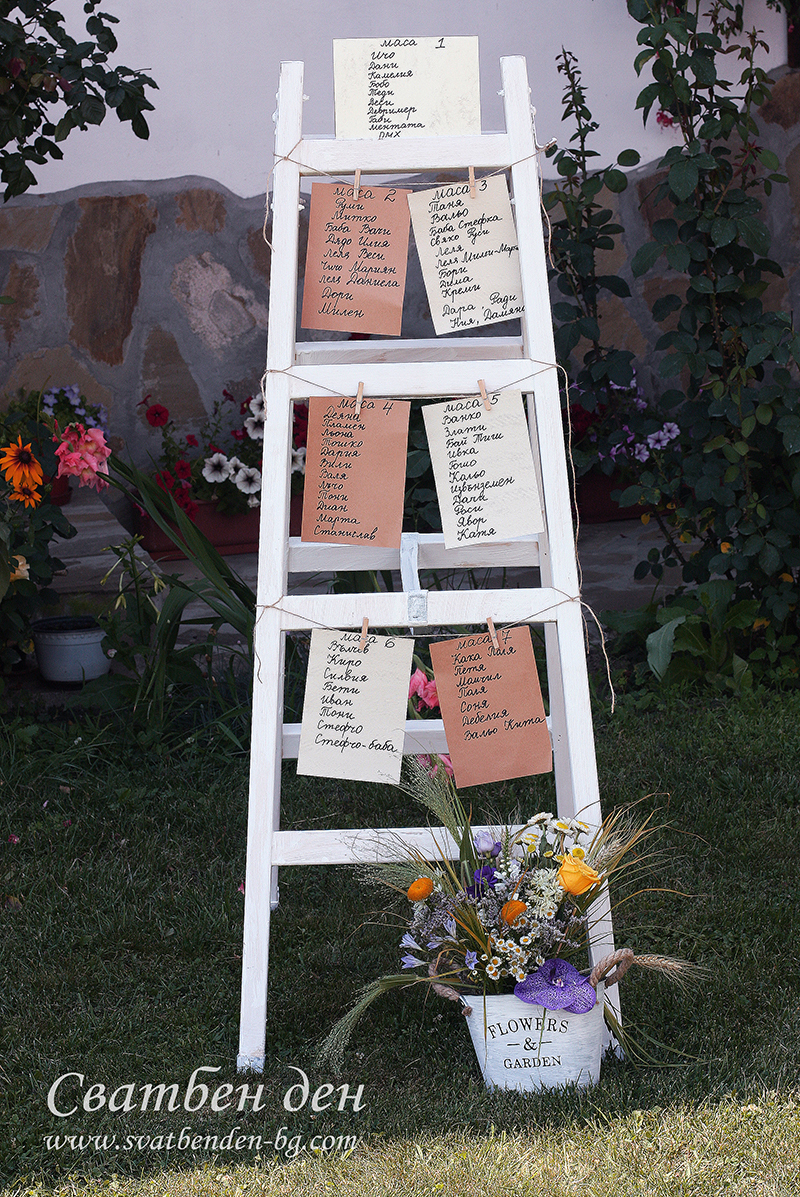 маса 1
Ичо
Дани
Камелия
Бобо
Теди
Деси
Девример
Габи
ментата
DMX
маса 2
Руми
Митко
Баба Вачи
Дядо Илия
Леля Веси
Чичо Мариян
Леля Даниела
Дори
Милен
маса 3
Таня
Вальо
Баба Стефка
Свако Руси
Леля
Леля Мими-Мара
Бори
Дима
Креми
Дара, Ради
Ния, Дамян
маса 4
Деяна
Пламен
Льона
Тошко
Дария
Вили
Валя
Лъчо
Тони
Диан
Марта
Станислав
маса 5
Ванко
Злати
Бай Тиш
Ивка
Бошо
Кальо
Извънземен
Дачи
Роси
Явор
Катя
маса 6
Вълчев
Киро
Силвия
Бети
Иван
Тони
Стефчо
Стефчо-баба
маса 7
Кака Галя
Петя
Момчил
Галя
Соня
Лебелия
Вальо Кита
FLOWERS
&
GARDEN
Сватбен ден
www.svatbenden-bg.com